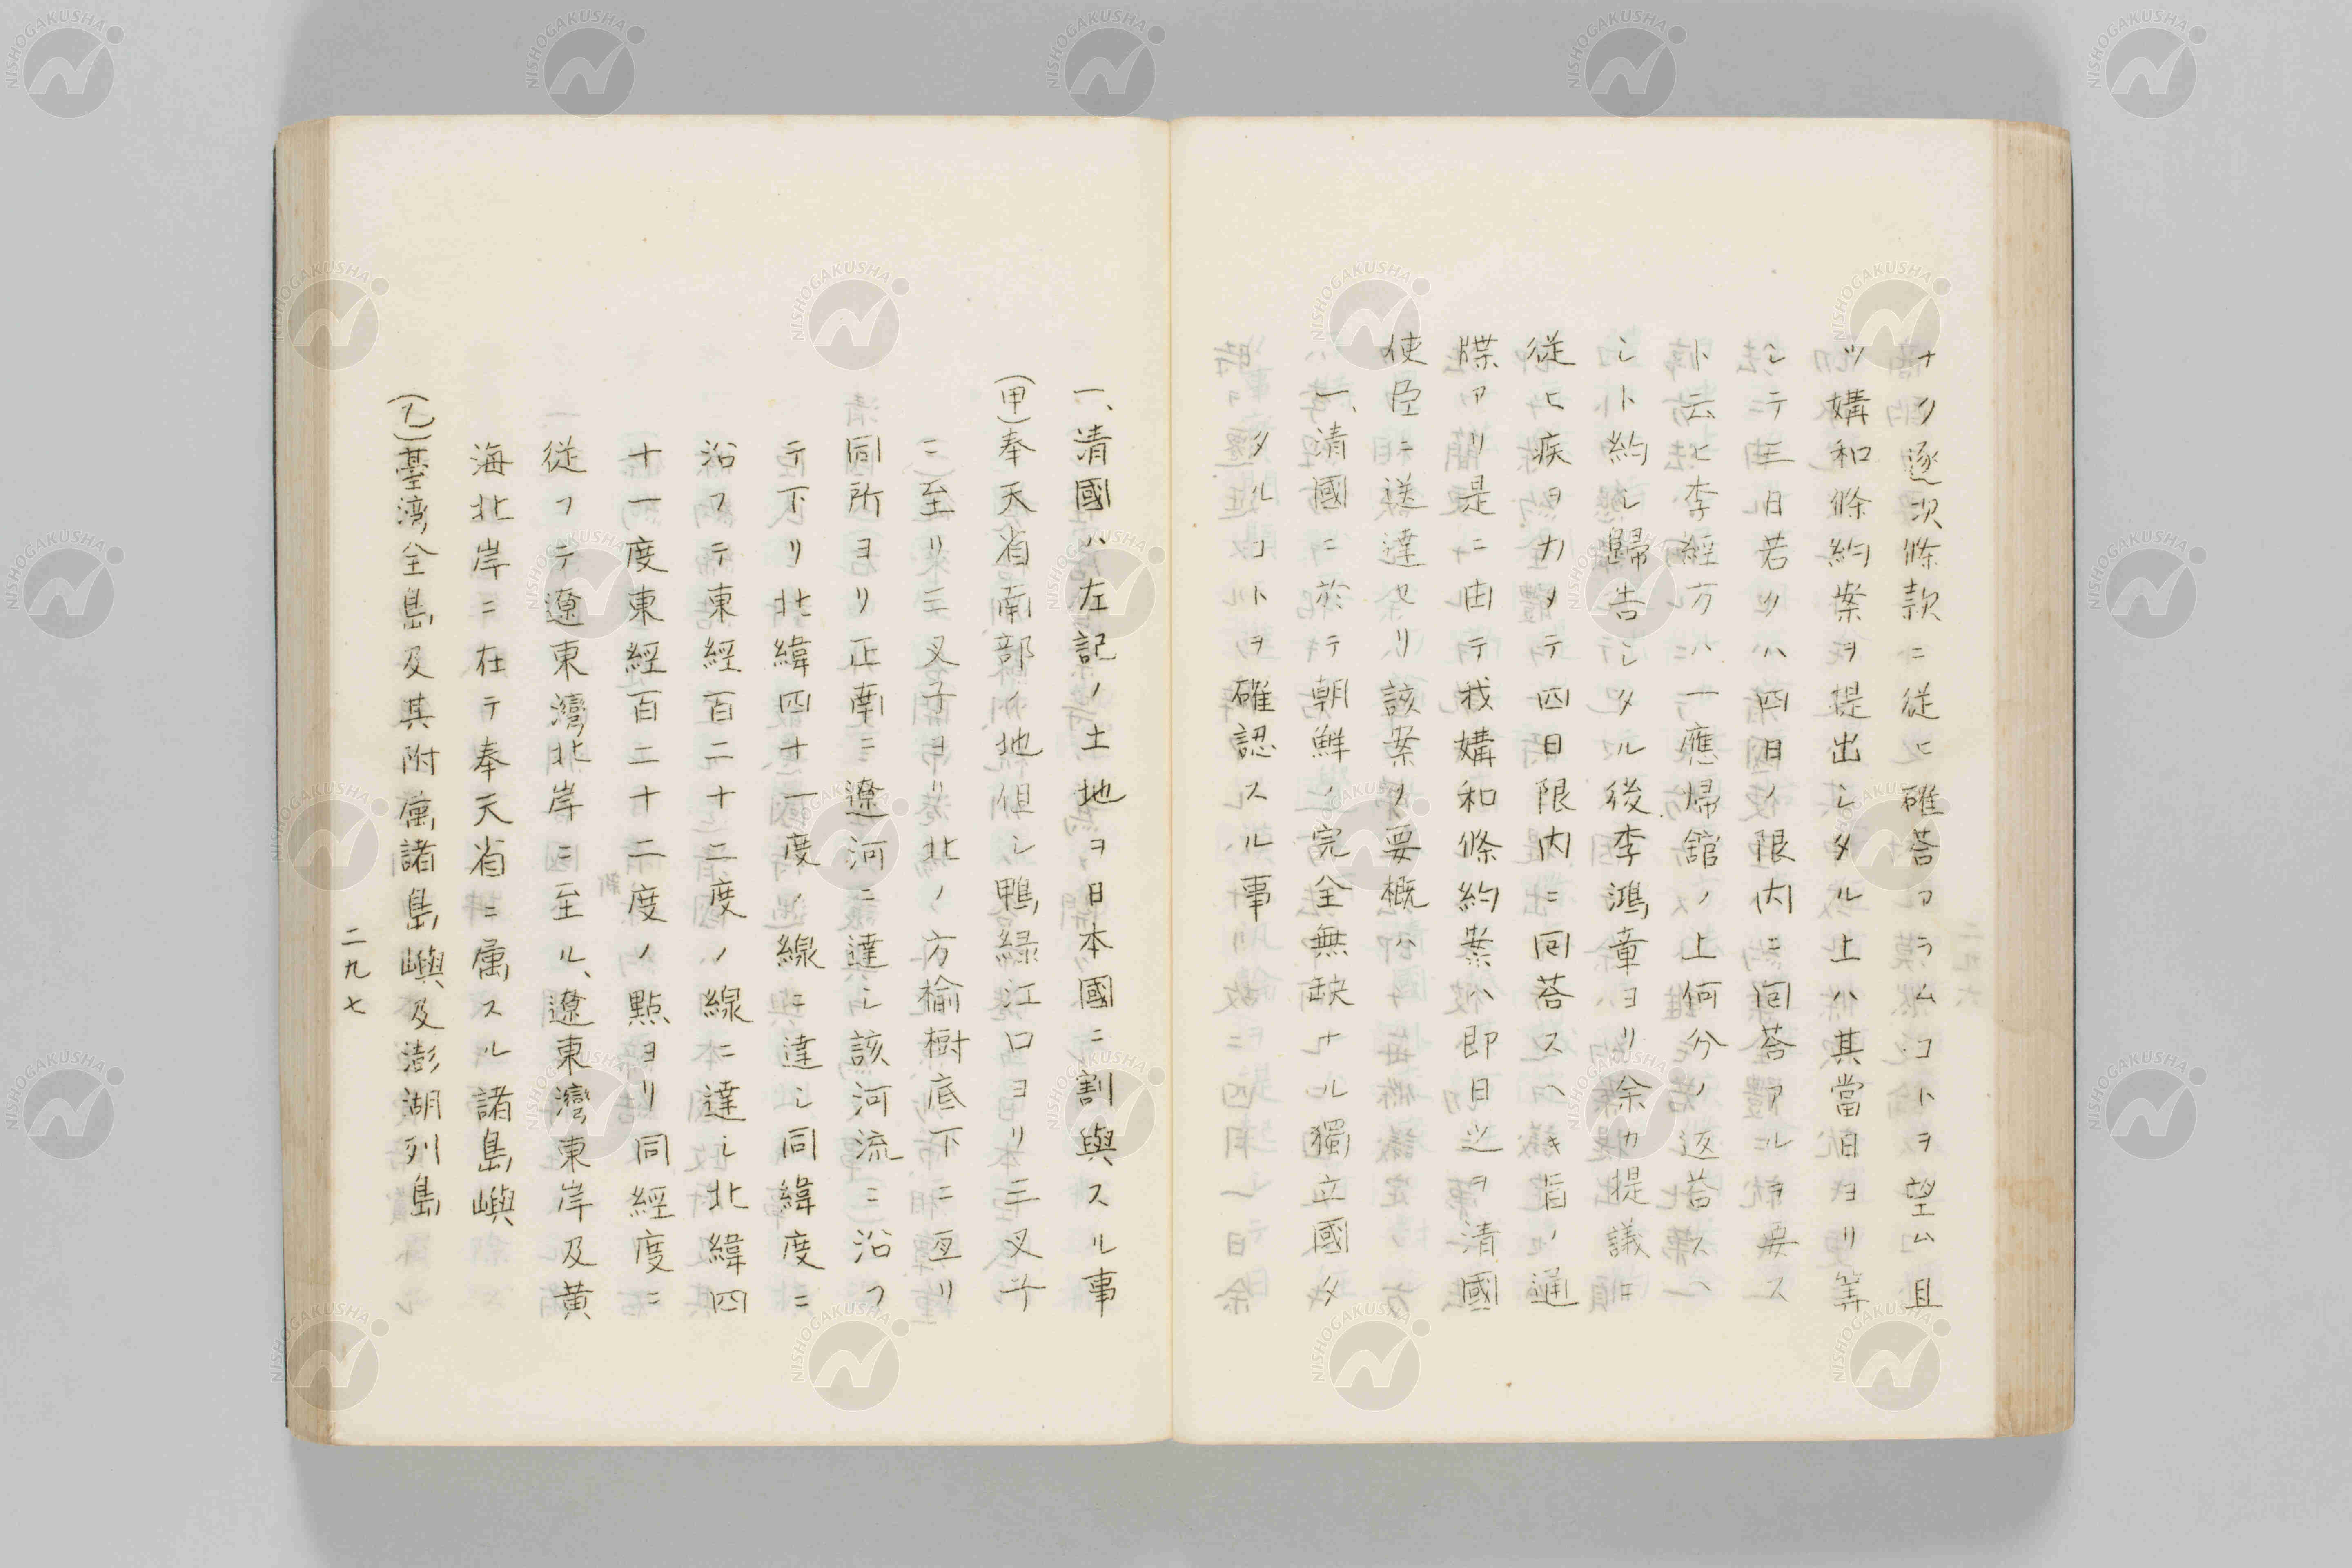 ナク逐次條款ニ従ヒ確荅アラムコトヲ望ム且
ツ媾和條約案ヲ提出シタル上ハ其當日ヨリ筭
シテ三日若クハ四日ノ限内ニ回荅アルヲ要ス
ト云ヒ李經方ハ一應帰舘ノ上何分ノ返荅スヘ
シト約シ歸告シタル後李鴻章ヨリ余カ提議ニ
従ヒ疾ヲカメテ四日限内ニ回荅スヘキ旨ノ通
牒アリ是ニ由テ我媾和條約案ハ即日之ヲ清國
使臣ニ送達セリ該案ノ要概ハ
一、清國ニ於テ朝鮮ノ完全無缺ナル獨立國タ
タルコトヲ確認スル事
一、清國ハ左記ノ土地ヲ日本國ニ割與スル事
(甲)奉天省南部ノ地但シ鴨緑江口ヨリ三叉子
ニ至リ三叉子ヨリ北ノ方榆樹底下ニ亙リ
同所ヨリ正南ニ遼河ニ達シ該河流ニ沿フ
テ下リ北緯四十一度ノ線ニ達シ同緯度ニ
沿フテ東經百二十二度ノ線ニ達シ北緯四
十一度東經百二十二度ノ點ヨリ同經度ニ
従フテ遼東灣北岸ニ至ル、遼東灣東岸及黄
海北岸ニ在テ奉天省ニ属スル諸島嶼
(乙)臺湾全島及其附属諸島嶼及澎湖列島
二九七
NISHOGAKUSHA